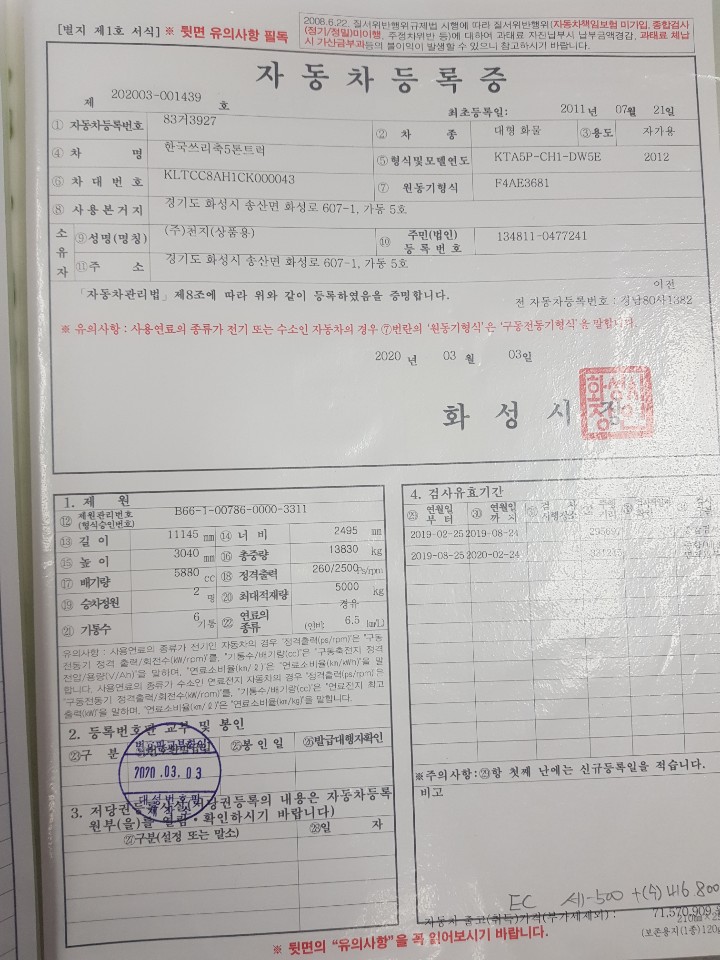 [별지 제1호 서식] ※ 뒷면 유의사항 필독
2008.6.22. 질서위반행위규제법 시행에 따라 질서위반행위(자동차책임보험 미가입, 종합검사
(정기/정밀)미이행, 주정차위반 등)에 대하여 과태료 자진납부시 납부금액경감, 과태료 체납
시 가산금부과등의 불이익이 발생할 수 있으니 참고하시기 바랍니다.
자동차등록증
제 202003-001439 호
최초등록일: 2011년 07월 21일
① 자동차등록번호 83거3927 ② 차 종 대형 화물 ③용도 자가용
④ 차 명 한국쓰리축5톤트럭 ⑤ 형식및모델연도 KTA5P-CH1-DW5E 2012
⑥ 차 대 번 호 KLTCC8AH1CK000043 ⑦ 원동기형식 F4AE3681
⑧ 사 용 본 거 지 경기도 화성시 송산면 화성로 607-1, 가동 5호
소유자 ⑨성명(명칭) (주)천지(상품용) ⑩ 주민(법인)등록번호 134811-0477241
⑪주 소 경기도 화성시 송산면 화성로 607-1, 가동 5호
「자동차관리법」제8조에 따라 위와 같이 등록하였음을 증명합니다.
이전
전 자동차등록번호 : 경남80사1382
※ 유의사항 : 사용연료의 종류가 전기 또는 수소인 자동차의 경우 ⑦번란의 '원동기형식'은 '구동전동기형식'을 말합니다.
2020 년 03 월 03일
화 성 시 장
1. 제 원
⑫ 제원관리번호(형식승인번호) B66-1-00786-0000-3311
⑬ 길 이 11145 mm ⑭ 너 비 2495 mm
⑮ 높 이 3040 mm ⑯ 총중량 13830 kg
⑰ 배기량 5880 cc ⑱ 정격출력 260/2500 ps/rpm
⑲ 승차정원 2 명 ⑳ 최대적재량 5000 kg
㉑ 기통수 6 기통 ㉒ 연료의 종류 경유 (연비: 6.5 km/L)
유의사항 : 사용연료의 종류가 전기인 자동차의 경우 '정격출력(ps/rpm)'은 '구동
전동기 정격 출력/회전수(kW/rpm)'를, '기통수/배기량(cc)'은 '구동축전지 정격
전압/용량(V/Ah)'을 말하며, '연료소비율(km/ℓ)'은 '연료소비율(km/kWh)'을 말
합니다. 사용연료의 종류가 수소인 연료전지 자동차의 경우 '정격출력(ps/rpm)'은
'구동전동기 정격출력/회전수(kW/rpm)'를, '기통수/배기량(cc)'은 '연료전지 최고
출력(kW)'을 말하며, '연료소비율(km/ℓ)'은 '연료소비율(km/kg)'을 말합니다.
2. 등록번호판 교부 및 봉인
㉓구 분 ㉕봉 인 일 ㉖발급대행자확인
2020. 03. 03
3. 저당권등록사실(저당권등록의 내용은 자동차등록
원부(을)를 열람·확인하시기 바랍니다)
㉗구분(설정 또는 말소) ㉘일 자
4. 검사유효기간
㉙ 연월일부터 ㉚ 연월일까지
2019-02-25 2019-08-24
2019-08-25 2020-02-24
※주의사항:㉙항 첫째 난에는 신규등록일을 적습니다.
비고
EC 세1-500 +(수)416.800
자동차 출고(취득)가격(부가세제외) : 71,570,909
(보존용지(1종)120g
※ 뒷면의 "유의사항"을 꼭 읽어보시기 바랍니다.